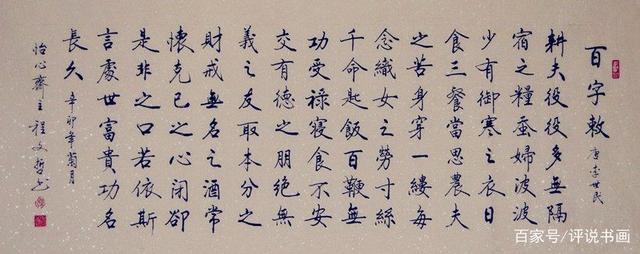 百字敕
唐 李世民
耕夫役役多無隔
宿之糧蠶婦波波
少有御寒之衣日
食三餐當思農夫
之苦身穿一縷每
念織女之勞寸絲
千命匙飯百鞭無
功受祿寢食不安
交有德之朋絕無
義之友取本分之
財戒無名之酒常
懷克己之心閉卻
是非之口若依斯
言處世富貴功名
長久
辛卯年菊月
怡心齋主程文哲书
百家号/评说书画